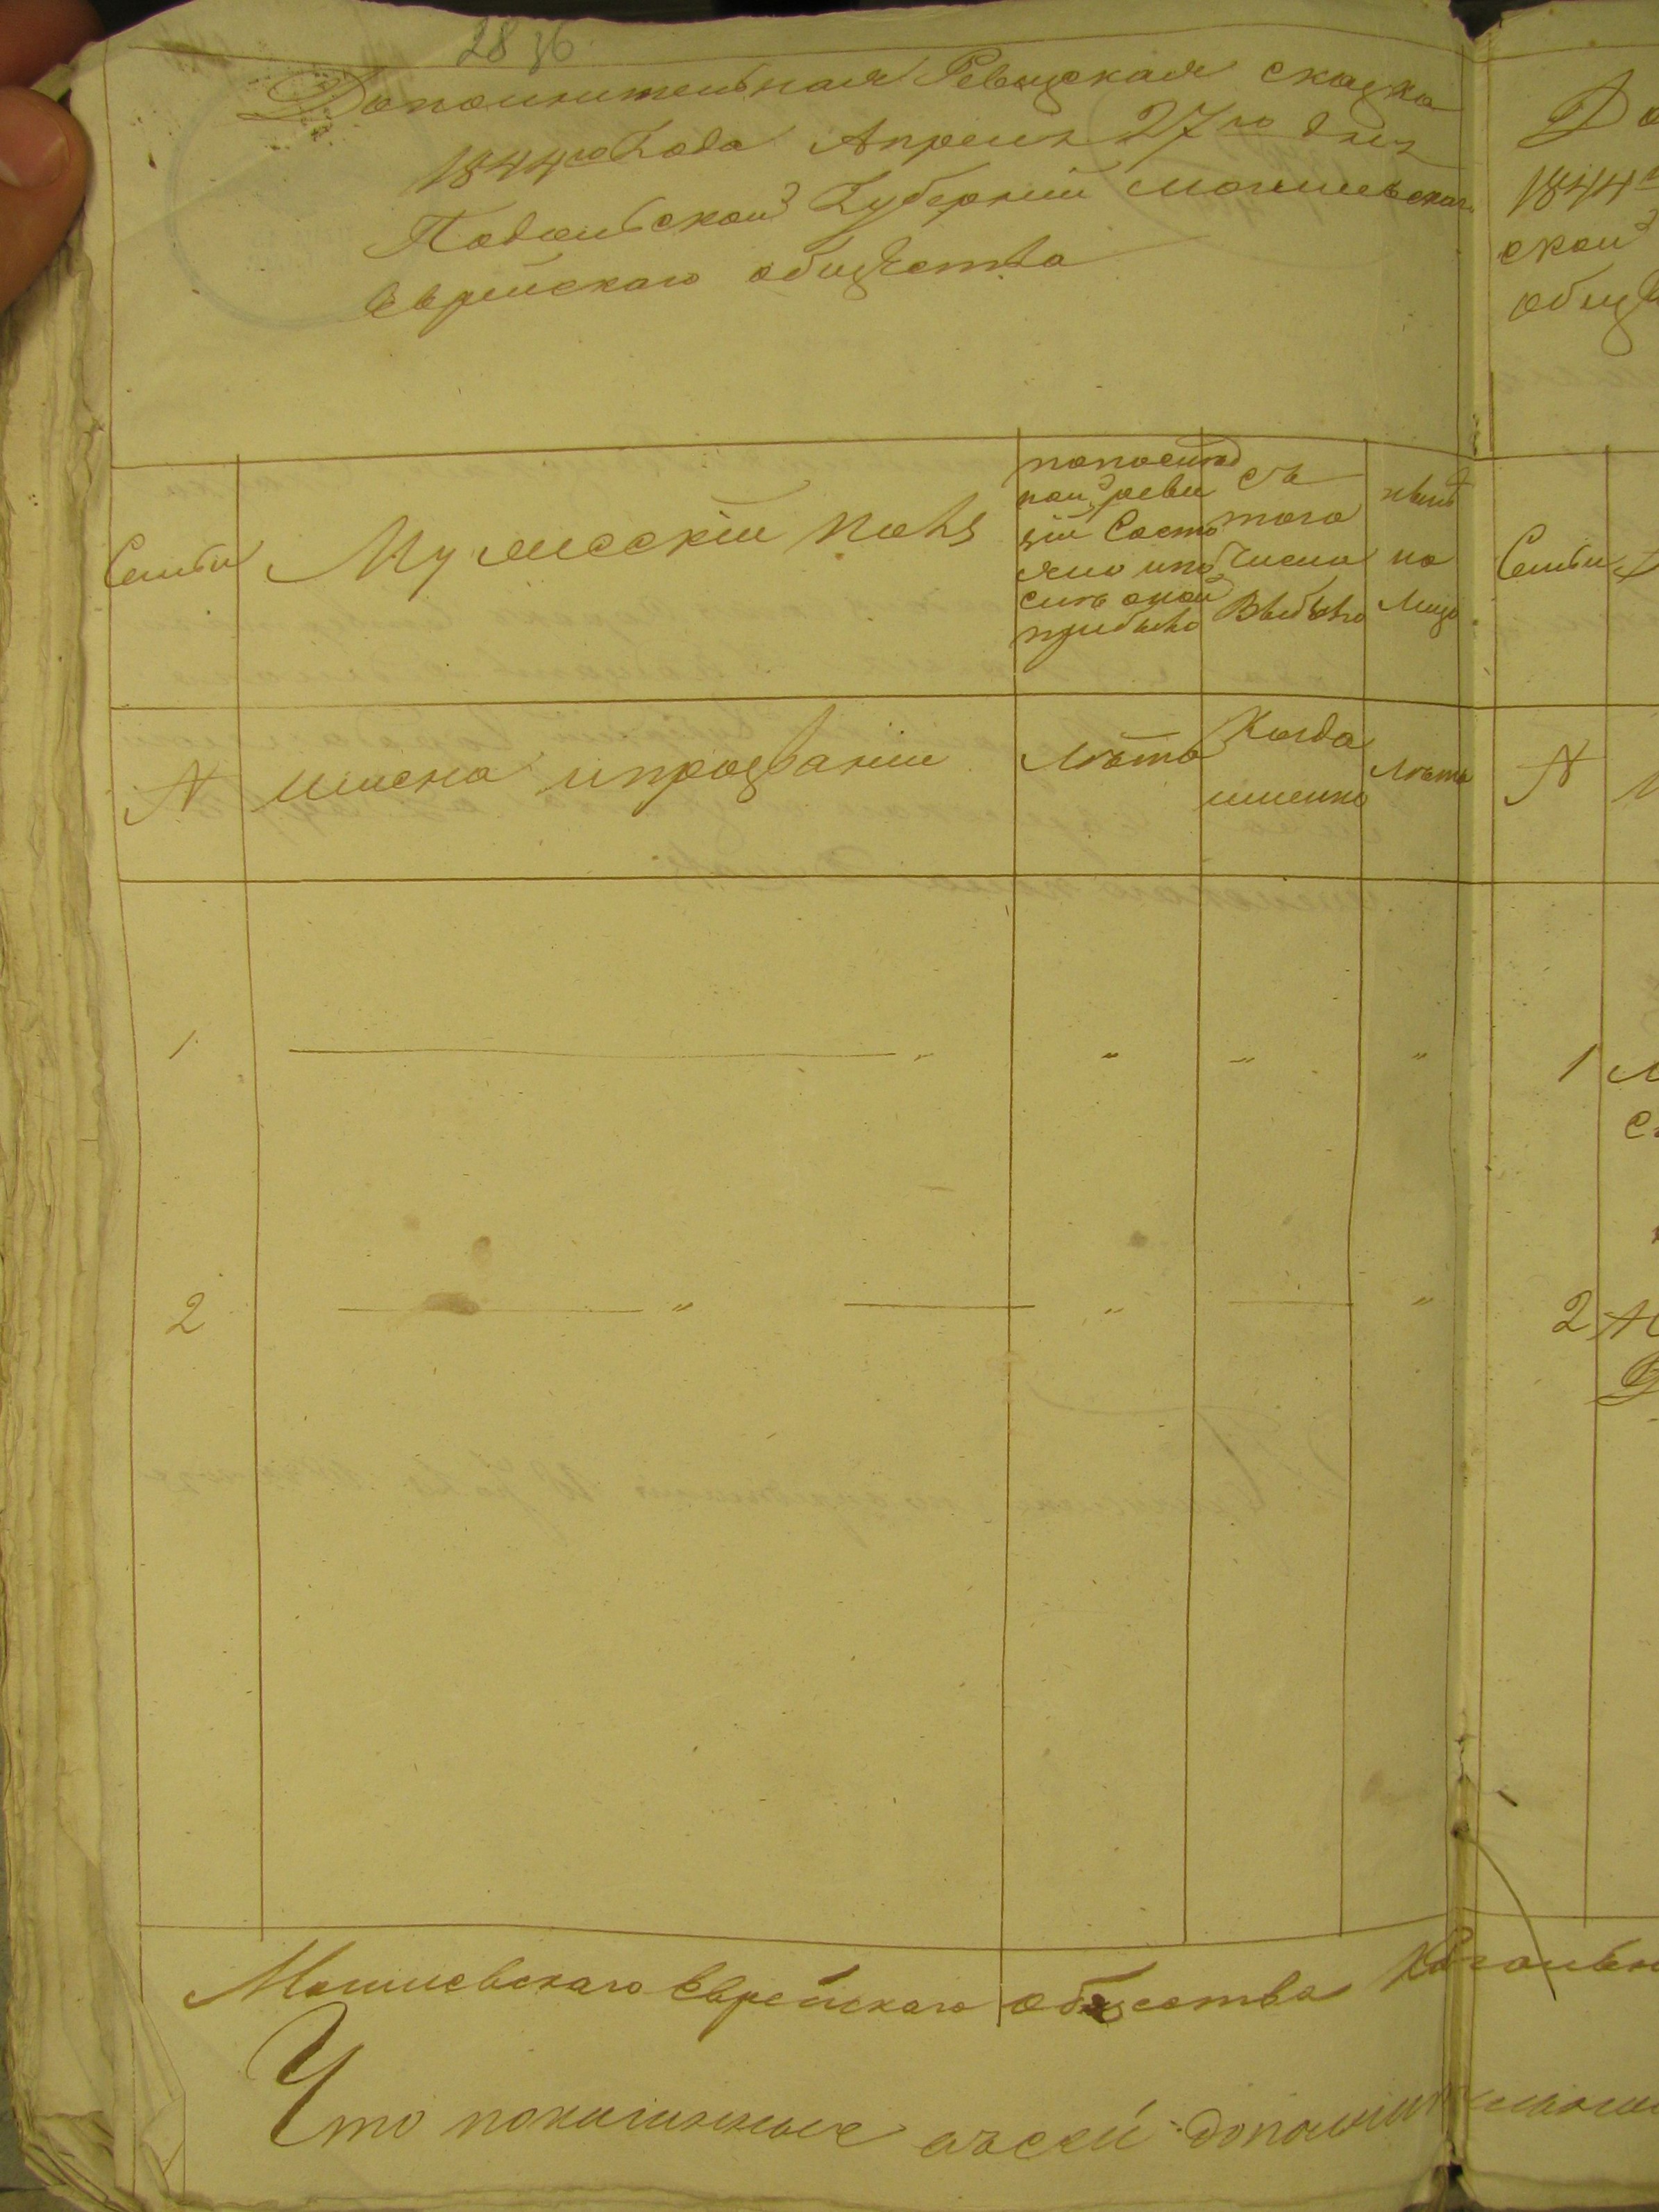 28 36
Дополнительная Ревизская сказка
1844го Года Апреля 27го дня
Подольской Губернии Могилевскаго
Еврейскаго общества
Семьи
Мужесскій полъ
по послед
ней реви
зіи Состо
яло и по
сли оной
прибыло
съ
того
Числа
Выбыло
нынѣ
на
Лицо
N
имена и прозваніи
Лѣта
Когда
имянно
Лѣта
1
2
Могилевскаго Еврейскаго общества Кагальн
Что показанные въ сей дополнит
До
1844го
ской
общ
Семьи
N
1
2